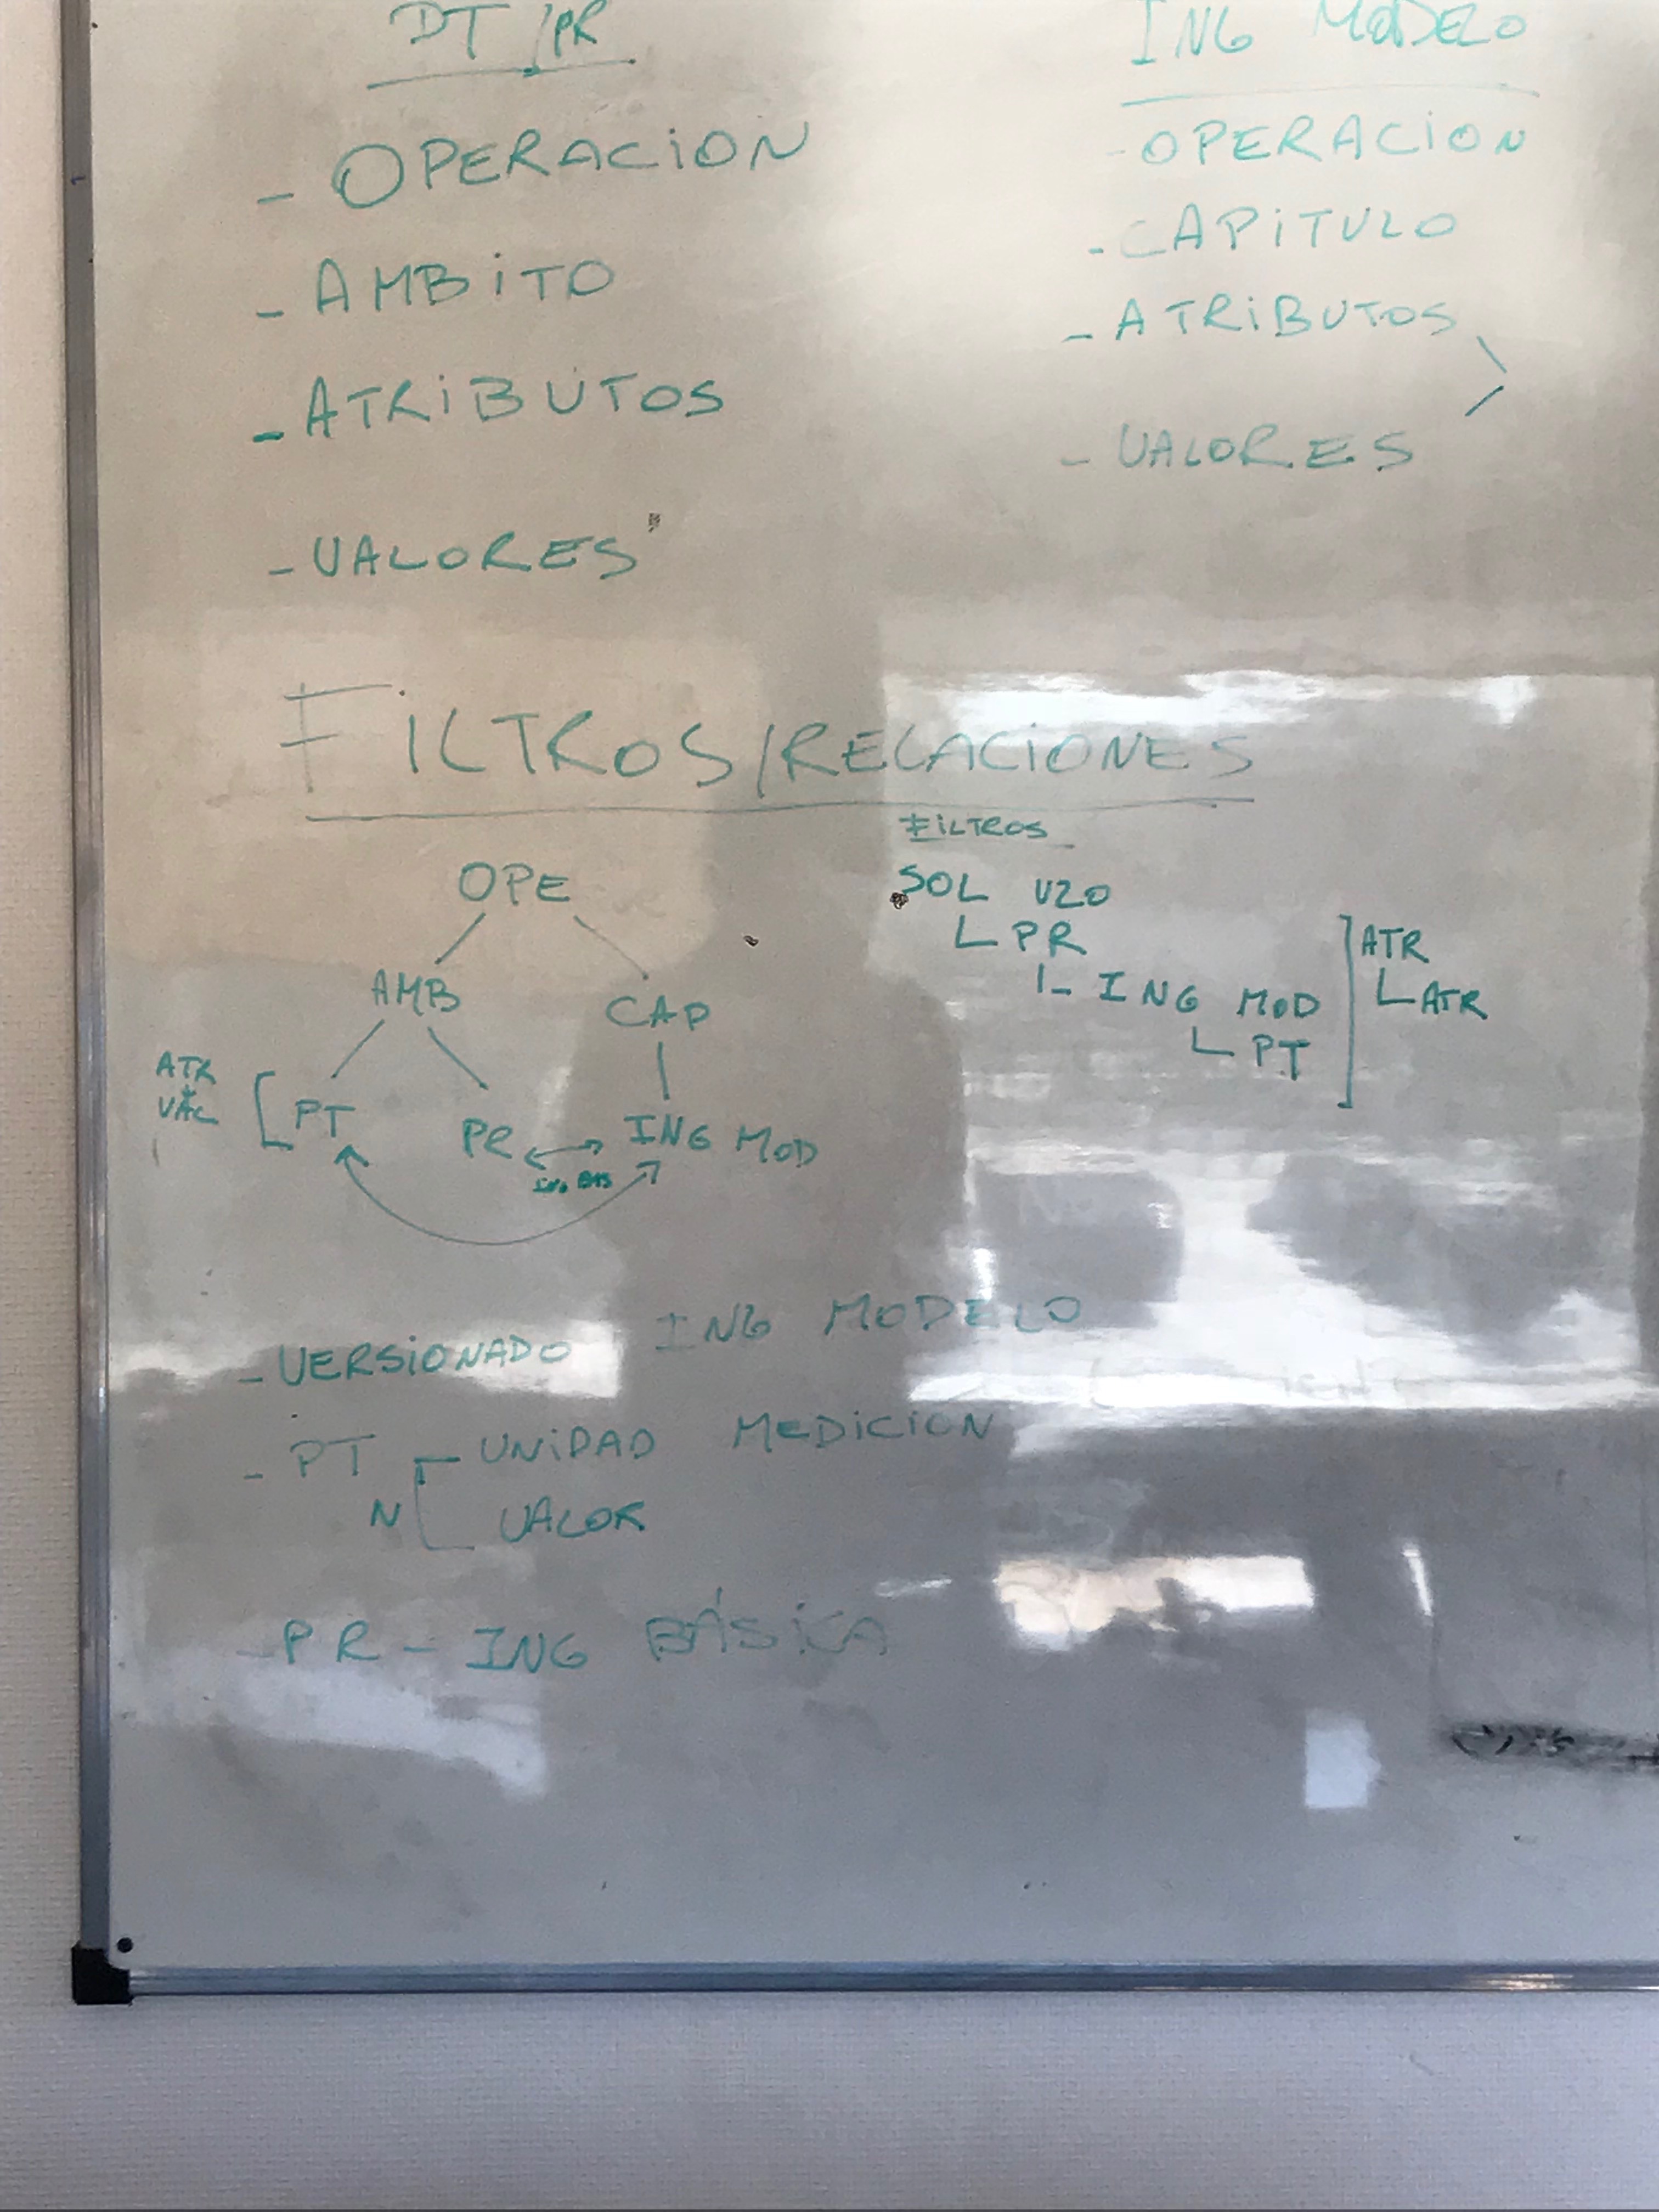 DT/PR
- OPERACION
- AMBITO
- ATRIBUTOS
- VALORES
ING MODELO
- OPERACION
- CAPITULO
- ATRIBUTOS
- VALORES
FILTROS/RELACIONES
OPE
AMB CAP
ATR
VAL
PT PR ING MOD
FILTROS
SOL V20
PR
ING MOD
PT
ATR
ATR
- VERSIONADO ING MODELO
- PT UNIDAD MEDICION
N VALOR
- PR - ING BÁSICA